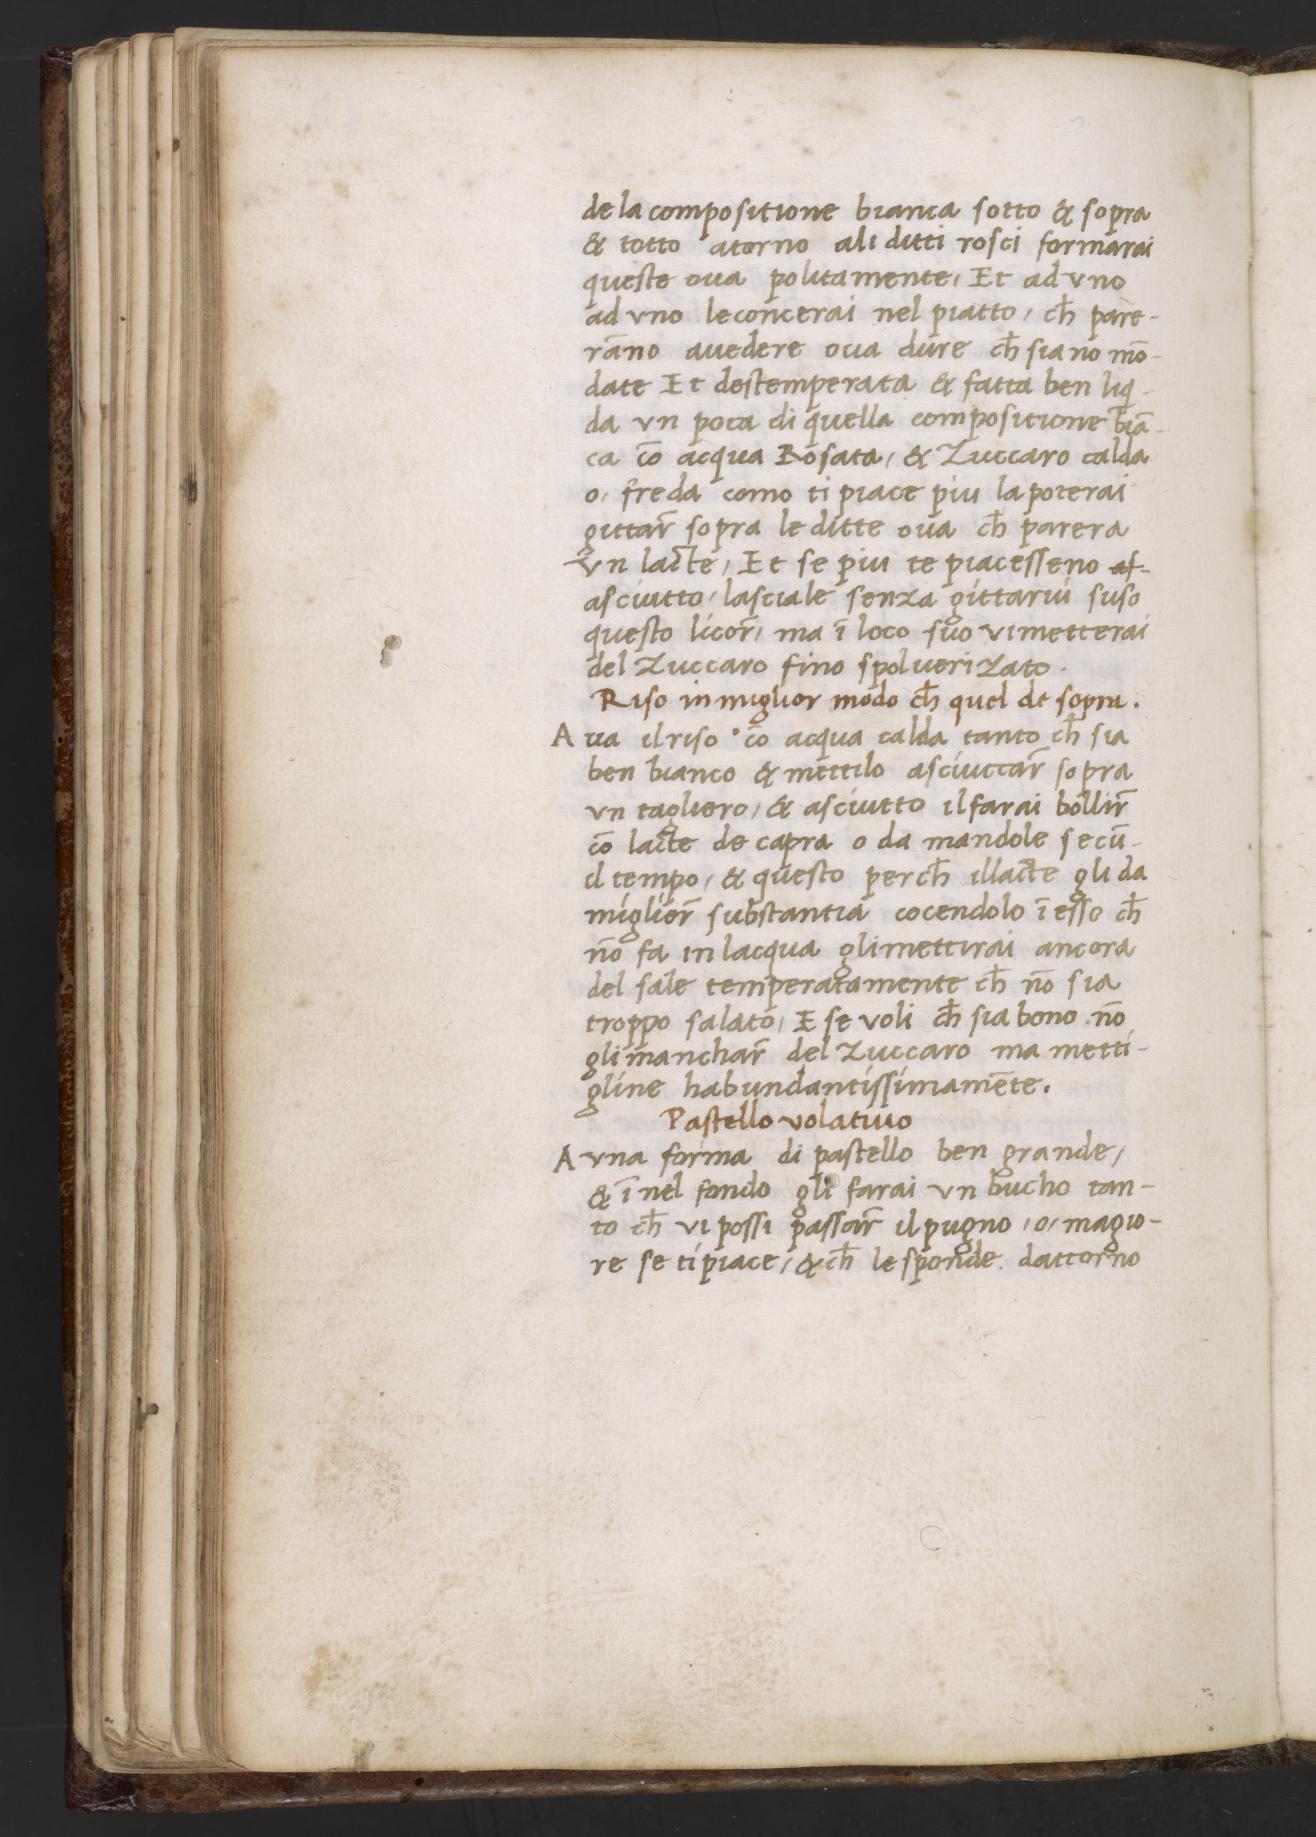 de la compositione bianca sotto & sopra
& totto atorno ali ditti rosci formarai
queste oua politamente, Et ad vno
ad vno le concerai nel piatto, ch̄ pare-
rāno auedere oua dure ch̄ siano mō-
date Et destemperata & fatta ben liq-
da vn poca di quella compositione biā-
ca cō acqua Rosata, & Zuccaro calda
o, freda como ti piace piu la poterai
gittar̄ sopra le ditte oua ch̄ parera
vn lacte, Et se piu te piacesseno as-
asciutto, lasciale senza gittarui suso
questo licor̄, ma ī loco suo vi metterai
del Zuccaro fino spoluerizato.
Riso in miglior modo ch̄ quel de sopra.
Aua il riso cō acqua calda tanto ch̄ sia
ben bianco & mettilo asciuttar̄ sopra
vn tagliero, & asciutto il farai bollir̄
cō lacte de capra o da mandole secū-
il tempo, & questo perch̄ il lacte gli da
miglior̄ substantia cocendolo ī esso ch̄
nō fa in lacqua gli mettirai ancora
del sale temperatamente ch̄ nō sia
troppo salato, E se voli ch̄ sia bono nō
gli manchar̄ del Zuccaro ma metti-
gline habundantissimamēte.
Pastello volatiuo
A vna forma di pastello ben grande,
& ī nel fondo gli farai vn bucho tan-
to ch̄ vi possi passar̄ il pugno, o, magio-
re se ti piace, & ch̄ le sponde dattorno